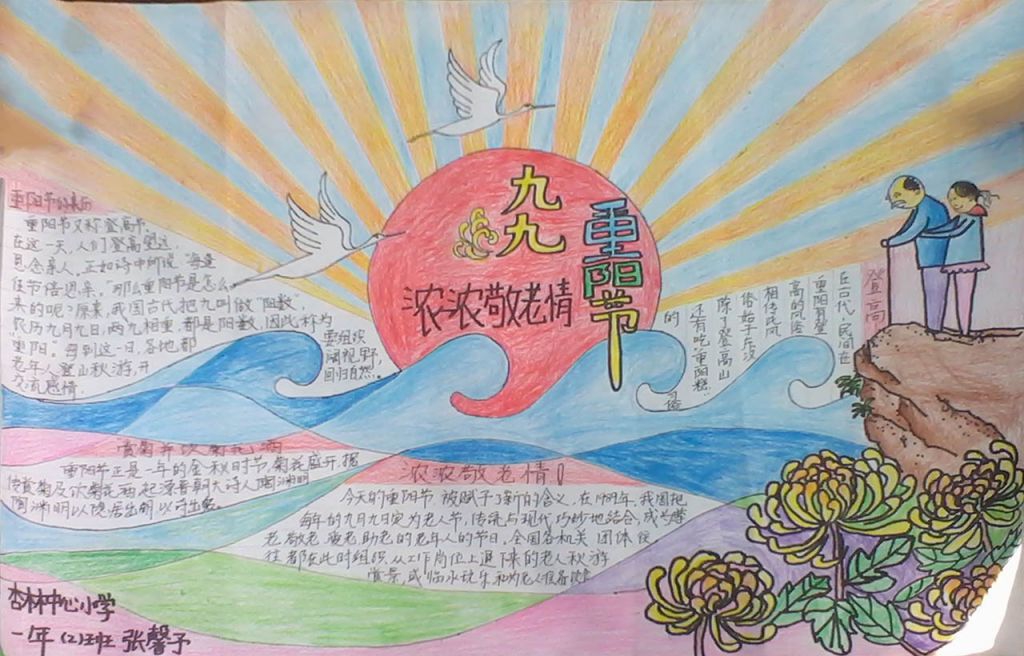 九九
重阳节
浓浓敬老情
重阳节的来历
重阳节又称登高节,
在这一天,人们登高望远,
思念亲人,正如诗中所说"每逢
佳节倍思亲。"那么重阳节是怎么
来的呢?原来,我国古代把九叫做"阳数",
农历九月九日,两九相重,都是阳数,因此称为
重阳。每到这一日,各地都
要组织
老年人登山秋游,开
阔视野,
交流感情,
回归自然。
登高
在古代,民间在
重阳有登
高的风俗
相传此风
俗始于东汉
除了登高山
还有吃重阳糕
的
习俗
赏菊并饮菊花酒
重阳节正是一年的金秋时节,菊花盛开,据
传赏菊及饮菊花酒,起源晋朝大诗人陶渊明
陶渊明以隐居出名以诗出名
浓浓敬老情!
今天的重阳节,被赋予了新的含义,在1989年,我国把
每年的九月九日定为老人节,传统与现代巧妙地结合,成为尊
老、敬老、爱老、助老的老年人的节日。全国各机关团体 往
往都在此时组织从工作岗位上退下来的老人秋游
赏景,或临水玩乐
杏林中心小学
一年(2)班 张馨予